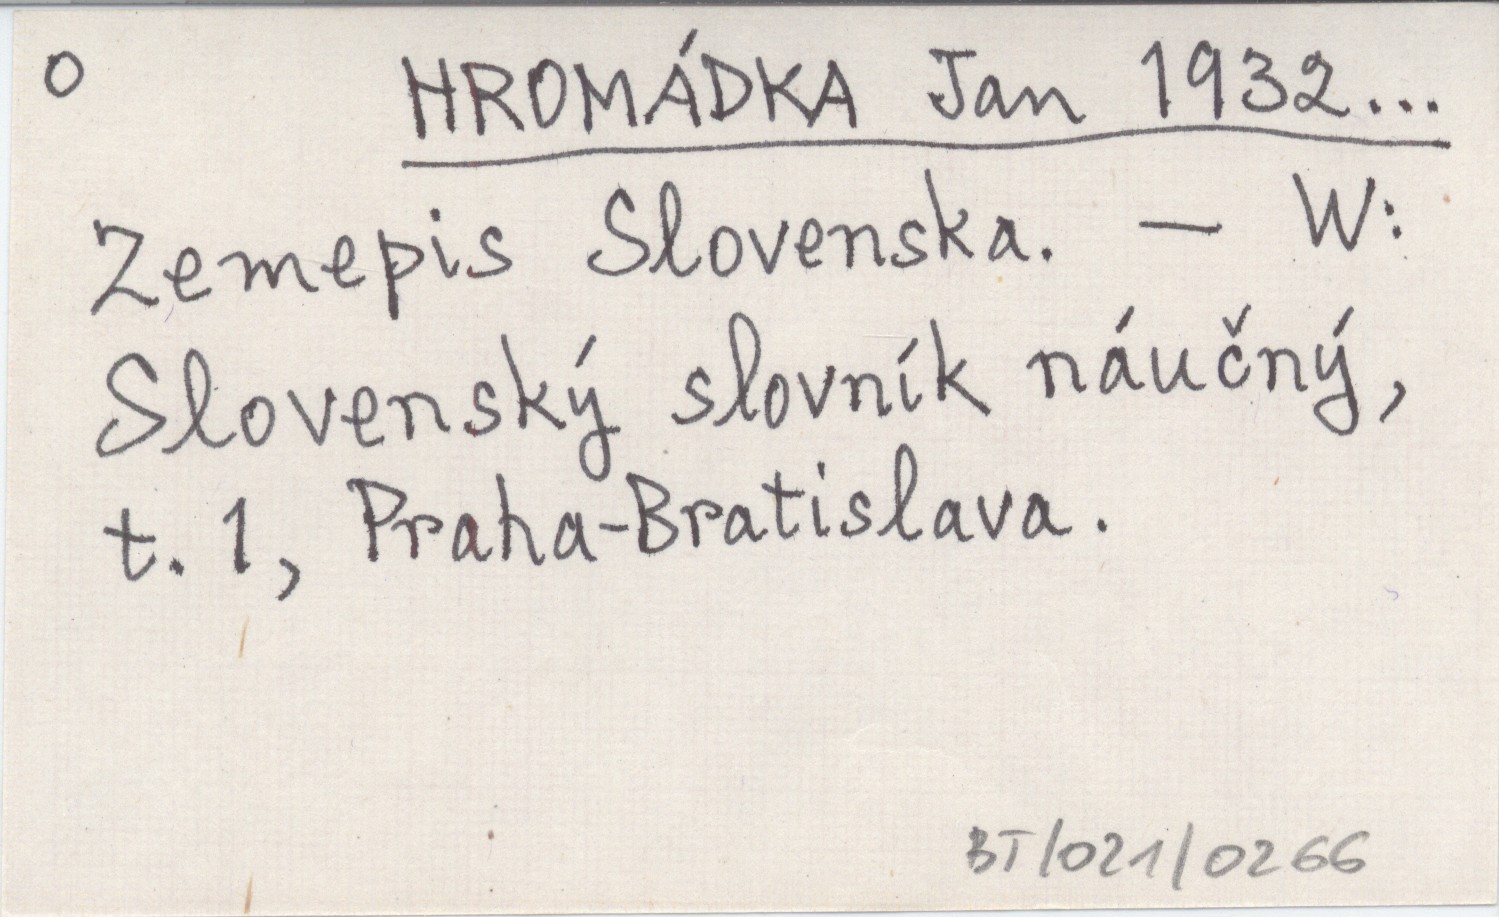 O
HROMÁDKA Jan 1932...
Zemepis Slovenska. — W:
Slovenský slovník náučný,
t. 1, Praha-Bratislava.
BT/021/0266